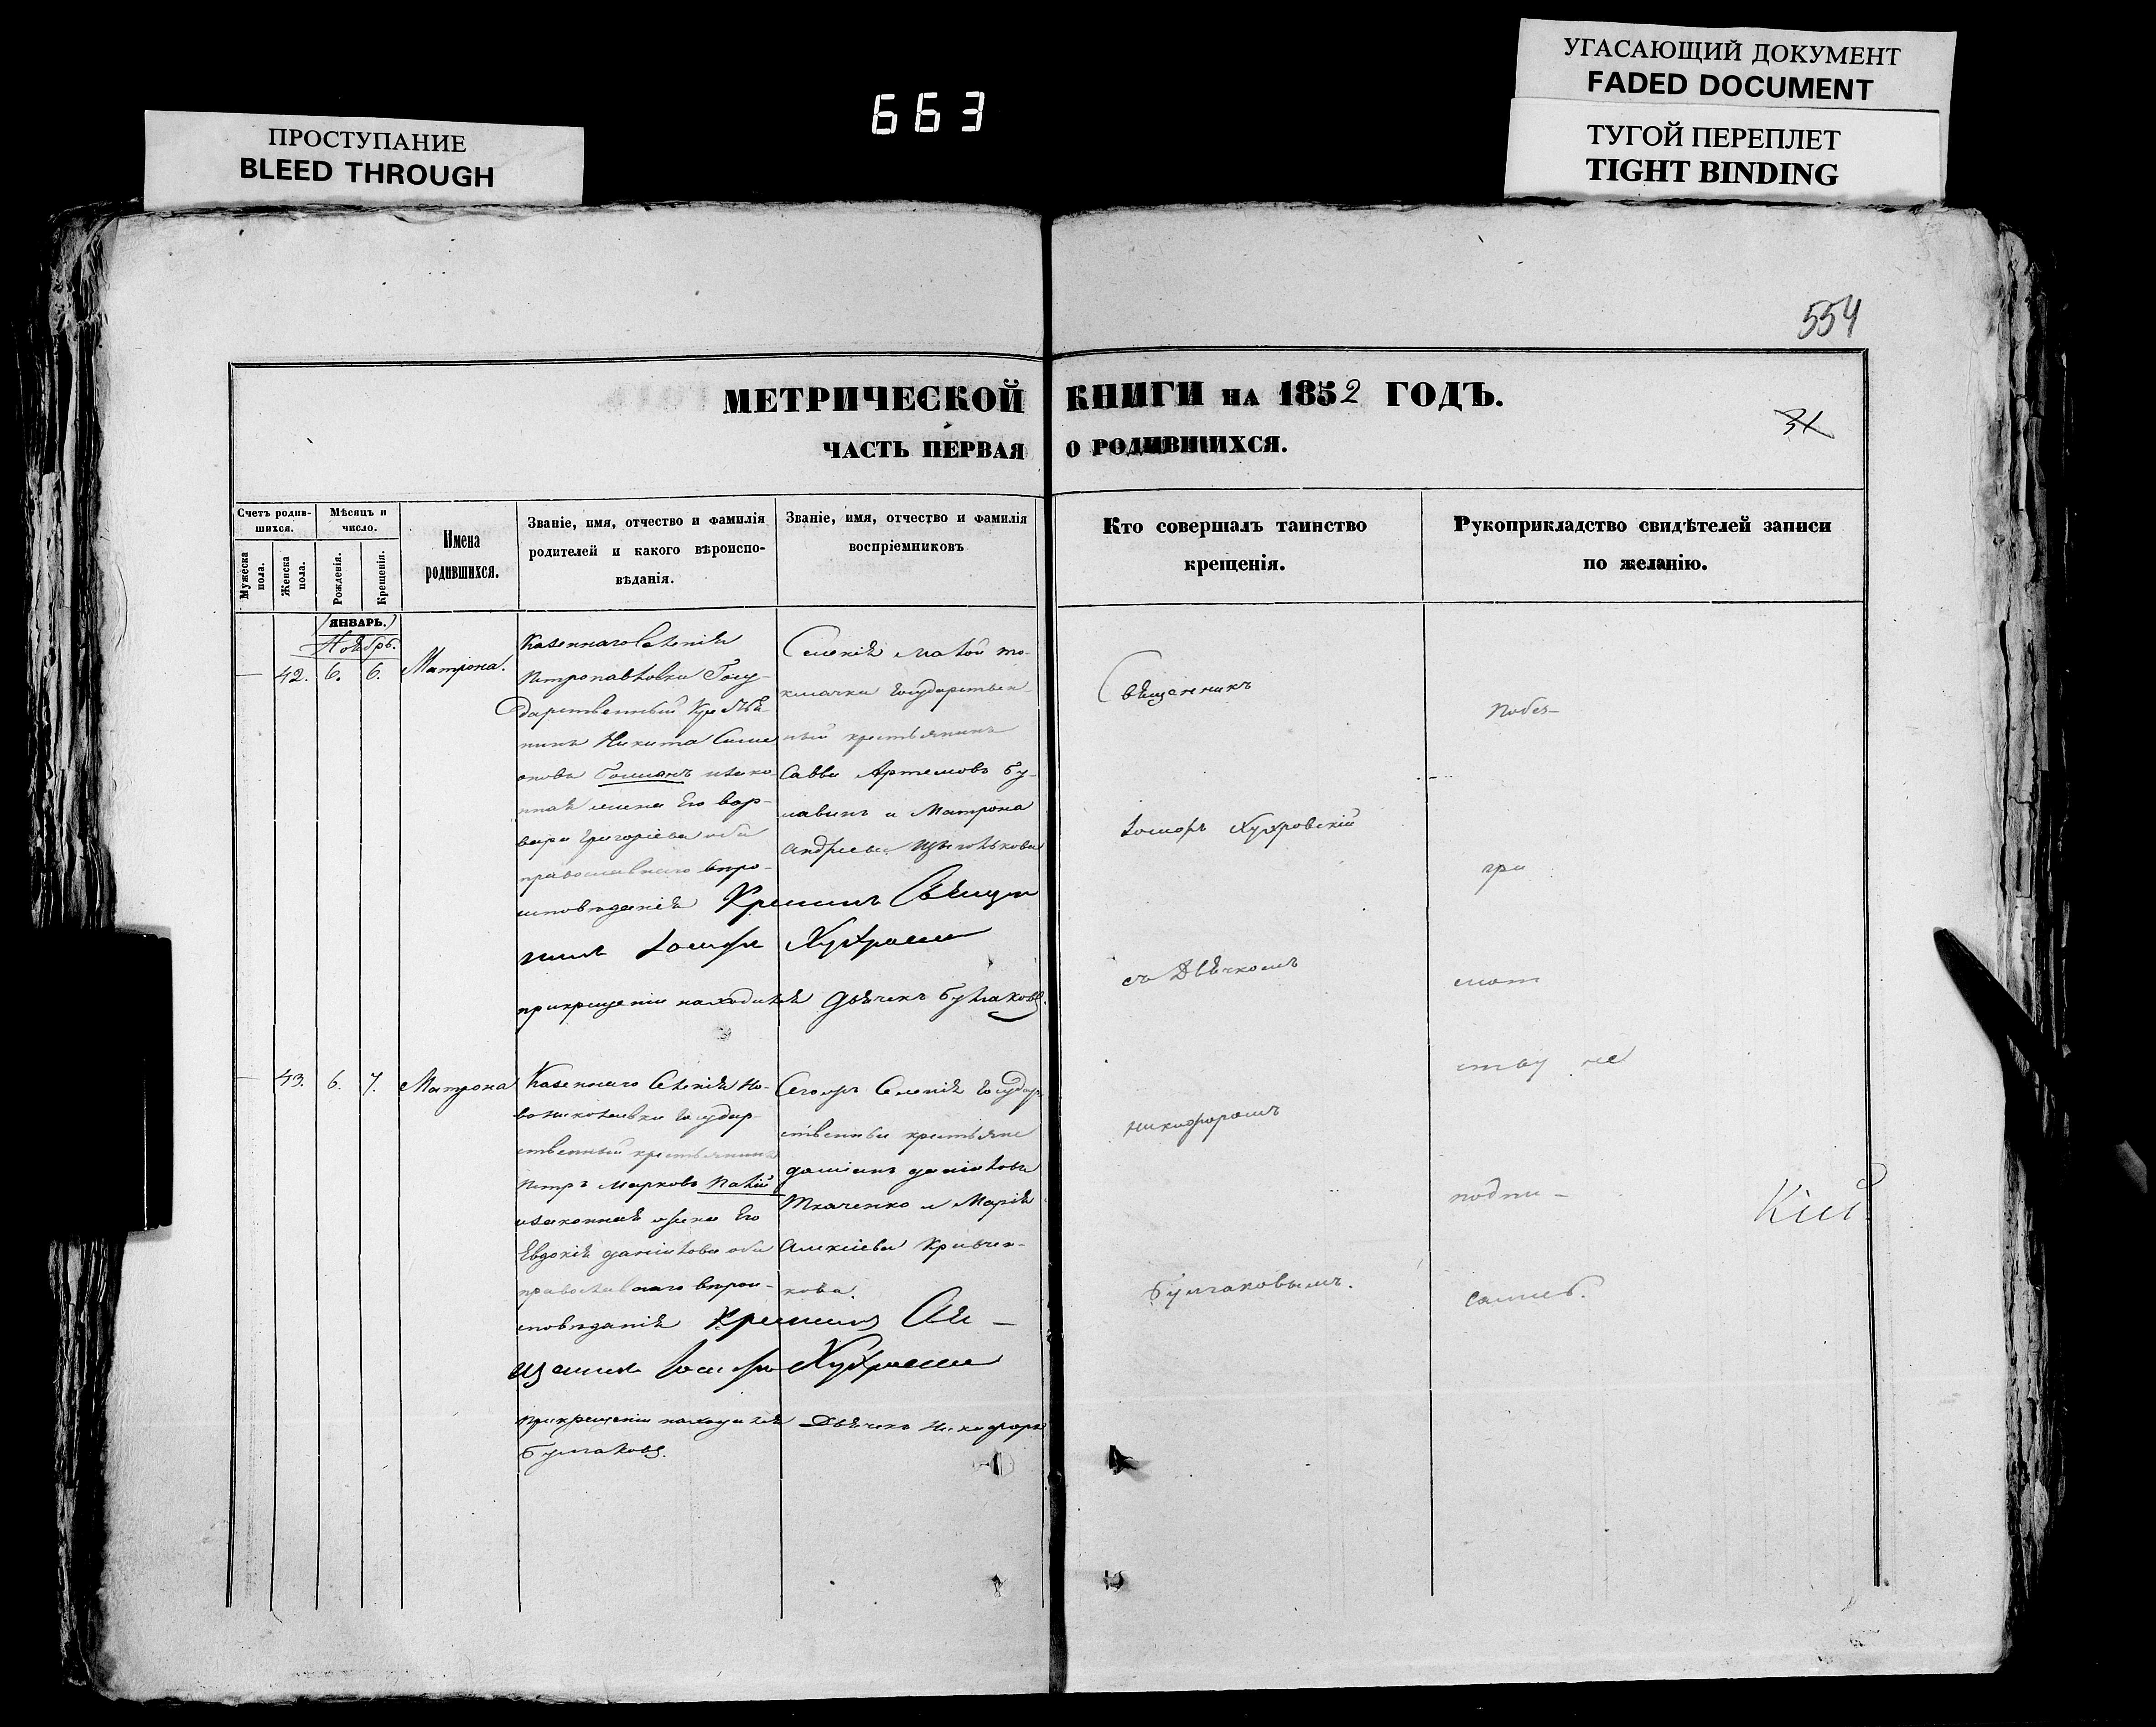 УГАСАЮЩИЙ ДОКУМЕНТ
FADED DOCUMENT
ТУГОЙ ПЕРЕПЛЕТ
TIGHT BINDING
663
ПРОСТУПАНИЕ
BLEED THROUGH
554
МЕТРИЧЕСКОЙ КНИГИ НА 1852 ГОДЪ.
31
ЧАСТЬ ПЕРВАЯ О РОДИВШИХСЯ.
Счетъ родив-
шихся.
Мужеска пола.
Женска пола.
Мѣсяцъ и
число.
Рожденія.
Крещенія.
Имена
родившихся.
Званіе, имя, отчество и фамилія
родителей и какого вѣроиспо-
вѣданія.
Званіе, имя, отчество и фамилія
воспріемниковъ
Кто совершалъ таинство
крещенія.
Рукоприкладство свидѣтелей записи
по желанію.
ЯНВАРЬ.
Ноябрь.
42. 6. 6. Матрона.
Казеннаго Селенія
Петропавловки Госу-
дарственный
Никита Симе
оновъ изако-
нная жена Его Вар-
вара Григоріева оба
православнаго вѣро-
исповѣданія Крестилъ Священ
никъ Іосифъ
при крещеніи находился Дьячекъ Булгаковъ.
Селенія Малой То-
кмачки Государствен-
ный крестьянинъ
Савва Артемовъ Бу-
лавинъ и Матрона
Андреева
Священникъ
Іосифъ
съ Дьячкомъ
Никифоромъ
Булгаковымъ.
Побез-
гра
мот
ству не
подпи-
салисъ.
Кій.
43. 6. 7. Матрона
Казеннаго Селенія Но-
вониколаевки Государ-
ственный крестьянинъ
Петръ Марковъ Палій
изаконная жена Его
Евдокія Даніилова оба
православнаго вѣрои-
сповѣданія Крестилъ Свя-
щенникъ Іосифъ
при крещеніи находился Дьячекъ Никифоръ
Булгаковъ.
Селенія Государ-
ственныи крестьяне
Даміанъ Даніиловъ
Ткаченко и Марія
Алексіева Кривчен-
кова.